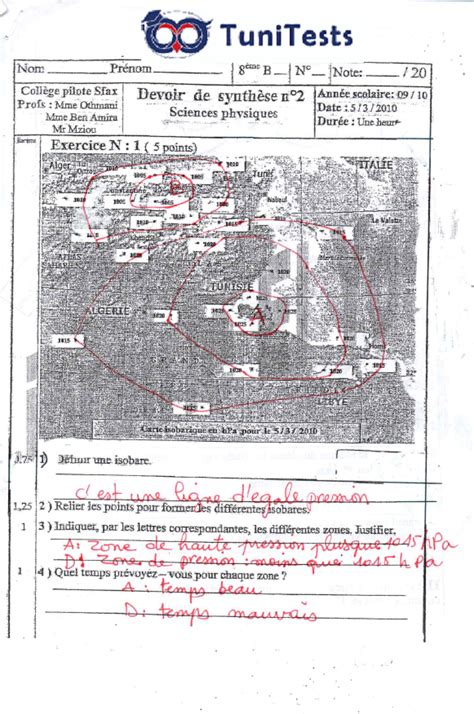 TuniTests
Nom: Prénom 8ème B N° Note: / 20
Collège pilote Sfax
Profs : Mme Othmani
Mme Ben Amira
Mr Mziou
Devoir de synthèse n°2
Sciences physiques
Année scolaire: 09 / 10
Date : 5 / 3 / 2010
Durée : Une heure
Exercice N : 1 ( 5 points)
Alger
1020
ITALIE
Tunis
1005
Constantine
1005
Nabeul
1010
La Valette
1015
1020
ATLAS
TUNISIE
ALGERIE
1020
1025
A
1025
1015
1020
1020
1015
LIBYE
Carte isobarique en hPa pour le 5 / 3 / 2010
0,75 1) Définir une isobare.
c'est une ligne d'egale pression
1,25 2 ) Relier les points pour former les différentes isobares.
1 3 ) Indiquer, par les lettres correspondantes, les différentes zones. Justifier.
A: zone de haute pression plus que 1015 hPa
D: zone de pression : moins que 1015 hPa
1 4 ) Quel temps prévoyez – vous pour chaque zone ?
A : temps beau
D: temps mauvais